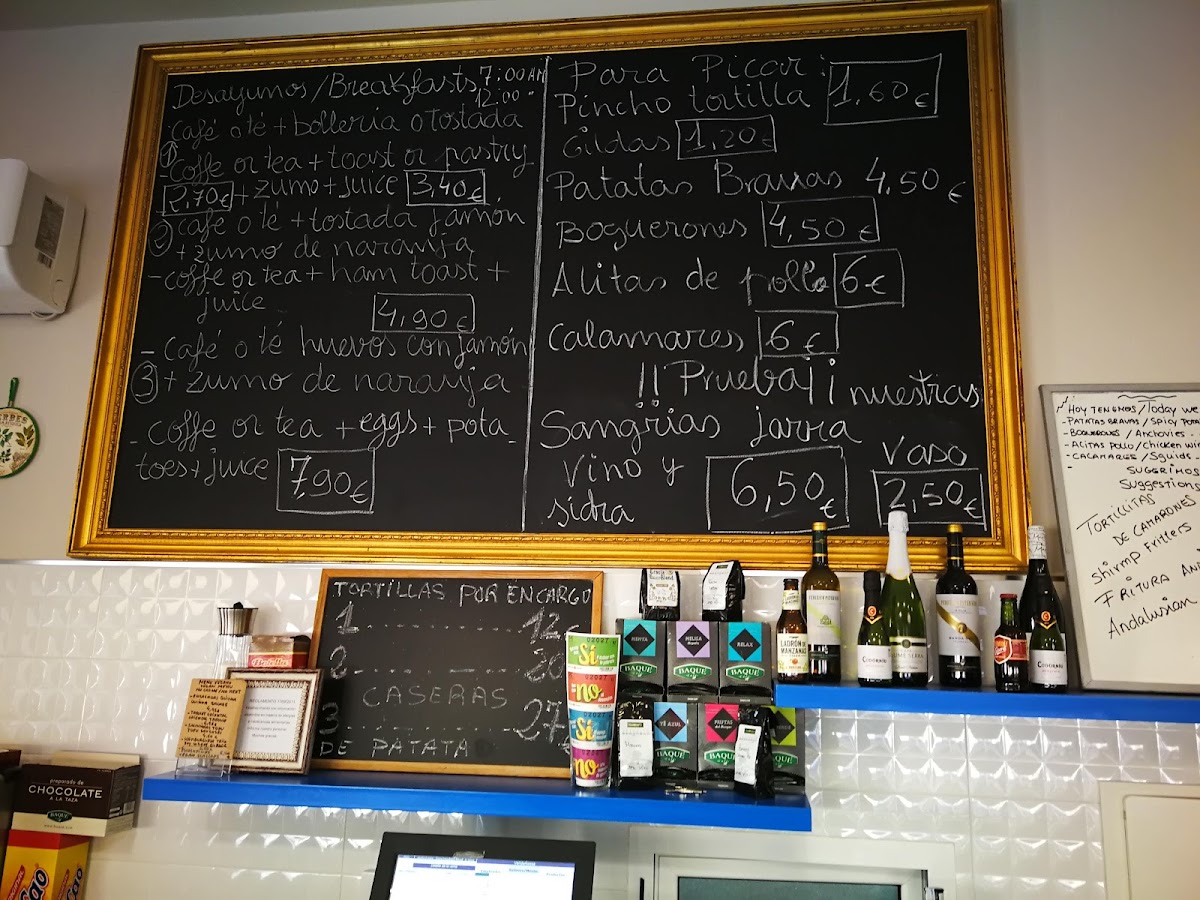 Desayunos/Breakfasts 7:00AM
12:00
Café o té + bollería o Tostada
①
-Coffe or tea + toast or pastry
2,70€ + zumo + juice 3,40€
② café o té + tostada jamón
+ zumo de naranja
-coffe or tea + ham toast +
juice
4,90€
- Café o té huevos con jamón
③ + zumo de naranja
- coffe or tea + eggs + pota_
toes + juice 7,90€
Para Picar:
Pincho tortilla 1,60€
Gildas 1,20€
Patatas Bravas 4.50€
Boquerones 4,50€
Alitas de pollo 6€
Calamares 6€
!!Prueba!¡ nuestras
Sangrias jarra
Vino y
sidra
6,50€
vaso
2,50€
Hoy tenemos/Today we
-Patatas bravas/Spicy pota
-Boquerones/Anchovies-
-Alitas pollo/Chicken win
-Calamares/Sguids-
-
Sugerimos
Suggestions
Tortillitas
de camarones
Shirmp Frillers
Fritura An
Andalusian
TORTILLAS POR ENCARGO
1 12€
2 20
CASERAS
3 27
€
DE PATATA
Sí
no
Sí
no
MENTA
MELISA
RELAX
BAQUÉ
BAQUÉ
BAQUÉ
TÉ AZUL
FRUTAS
BAQUÉ
BAQUÉ
BAQUÉ
LADRÓN DE
MANZANAS
CODORNÍU
CODORNÍU
preparado de
CHOCOLATE
A LA TAZA
BAQUÉ
Cao